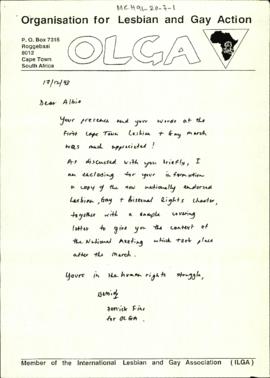 MCH91-20-7-1
Organisation for Lesbian and Gay Action
P. O. Box 7315
Roggebaai
8012
Cape Town
South Africa
OLGA
17/12/93
Dear Albie
Your presence and your words at the
First Cape Town Lesbian + Gay March
was much appreciated!
As discussed with you briefly, I
am enclosing for your information
a copy of the new nationally endorsed
Lesbian, Gay + Bisexual Rights Charter,
together with a sample covering
letter to give you the context of
the National Meeting which took place
after the march.
Yours in the human rights struggle,
Derrick Fine
for OLGA.
Member of the International Lesbian and Gay Association (ILGA)